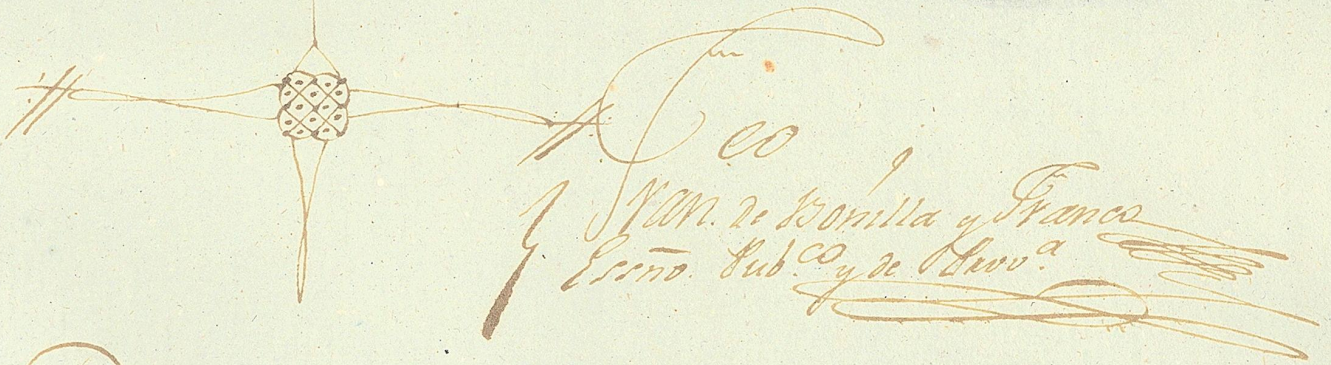 Fran.co de Bonilla y Franco
Essño. Pub.co y de Provª.